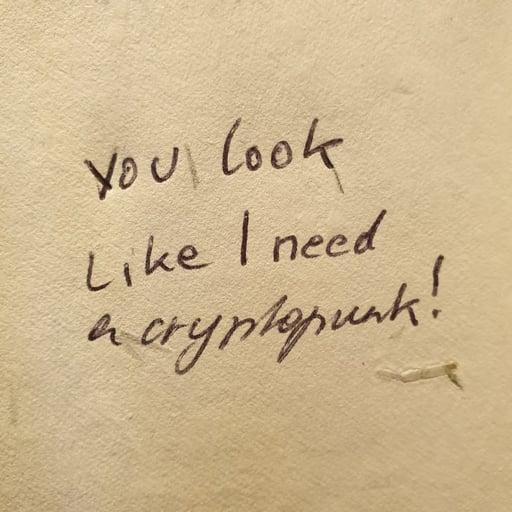 You look
Like I need
a cryptopunk!